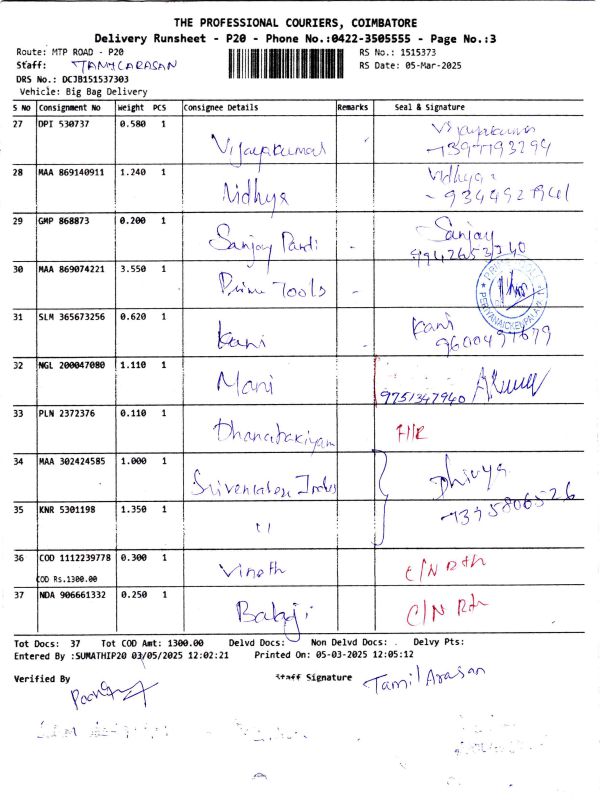 THE PROFESSIONAL COURIERS, COIMBATORE
Delivery Runsheet - P20 - Phone No.:0422-3505555 - Page No.:3
Route: MTP ROAD - P20 RS No.: 1515373
Staff: TAMILARASAN RS Date: 05-Mar-2025
DRS No.: DCJB151537303
Vehicle: Big Bag Delivery
S No Consignment No Weight PCS Consignee Details Remarks Seal & Signature
27 DPI 530737 0.580 1 Vijayakumar Vijayakumar
28 MAA 869140911 1.240 1 Nidhya Vidhya
29 GMP 868873 0.200 1 Sanjay Pandi - Sanjay
9942653740
30 MAA 869074221 3.550 1 Prime Tools - PERIYANAICKENPALAYAM
31 SLM 365673256 0.620 1 Kani Kani
9600497679
32 NGL 200047080 1.110 1 Mani 9751347940
33 PLN 2372376 0.110 1 Dhanabakiyam
34 MAA 302424585 1.000 1 Srivenkatesa Indus Dhivya
35 KNR 5301198 1.350 1 "
36 COD 1112239778 0.300 1 Vinoth C/N Rtn
COD Rs.1300.00
37 NDA 906661332 0.250 1 Balaji C/N Rtn
Tot Docs: 37 Tot COD Amt: 1300.00 Delvd Docs: Non Delvd Docs: . Delvy Pts:
Entered By :SUMATHIP20 03/05/2025 12:02:21 Printed On: 05-03-2025 12:05:12
Verified By Staff Signature Tamil Arasan